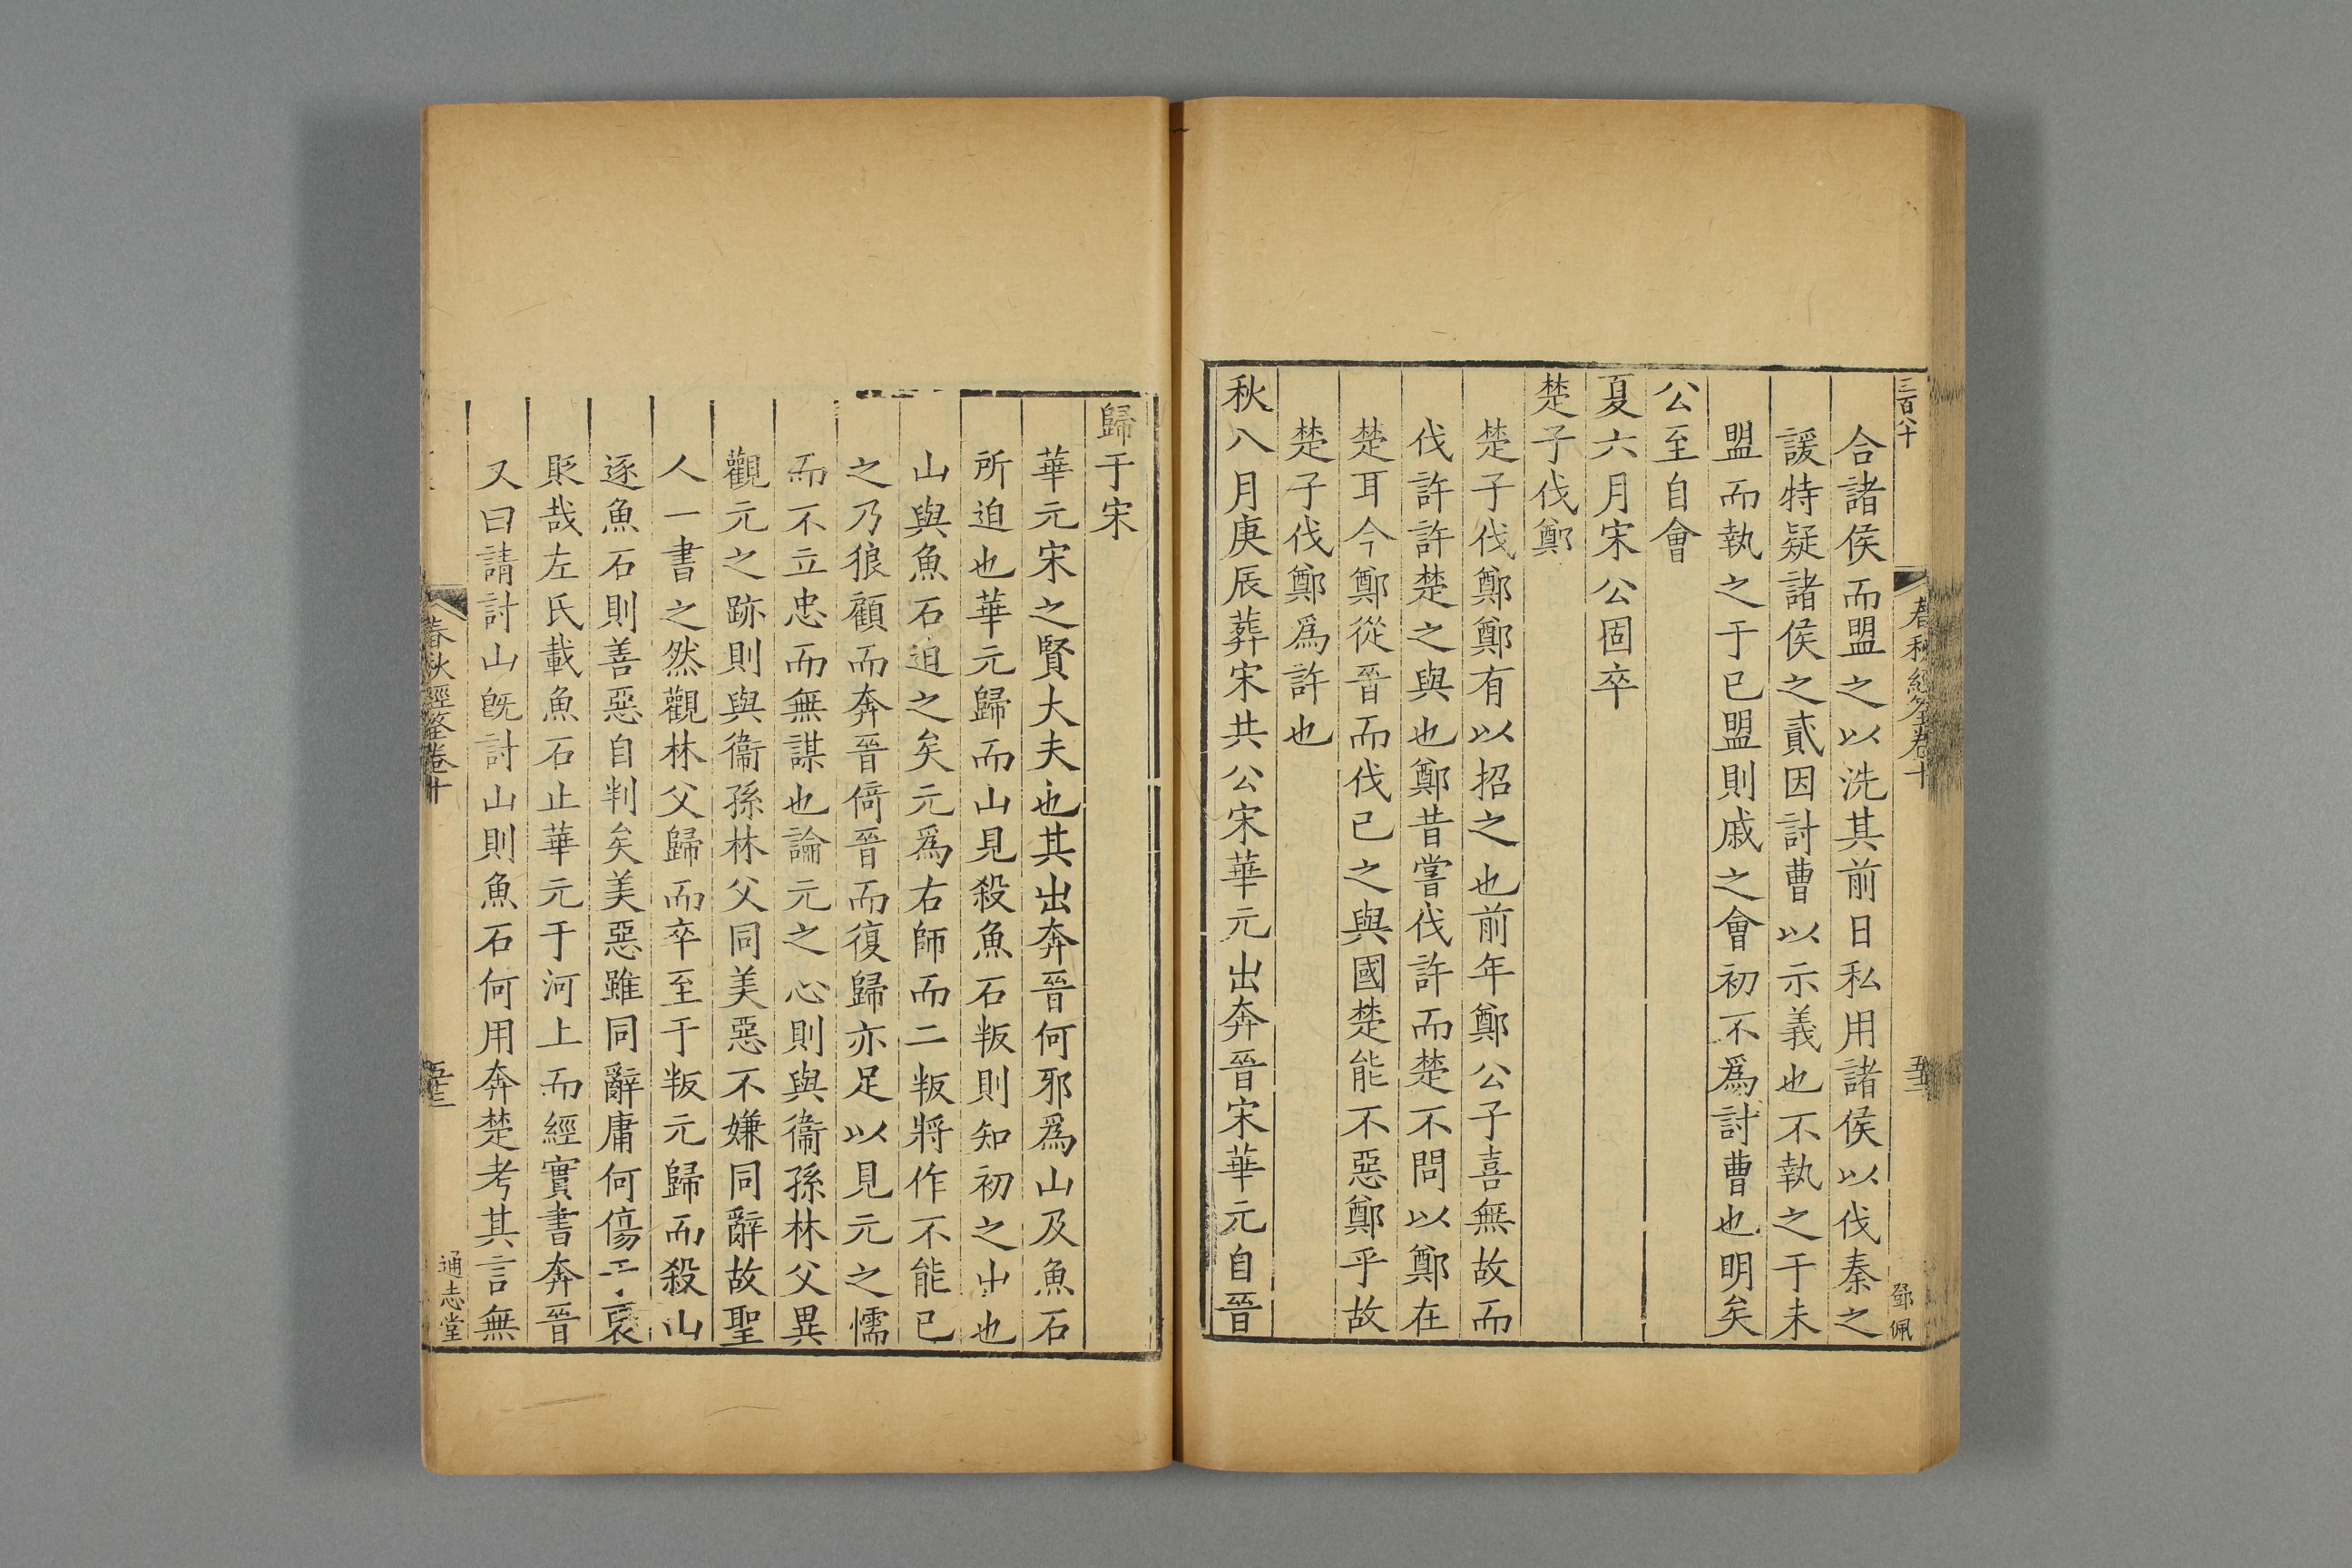 三百八十
合諸侯而盟之以洗其前日私用諸侯以伐秦之
諼特疑諸侯之貳因討曹以示義也不執之于未
盟而執之于已盟則戚之會初不爲討曹也明矣
公至自會
夏六月宋公固卒
楚子伐鄭
楚子伐鄭鄭有以招之也前年鄭公子喜無故而
伐許許楚之與也鄭昔嘗伐許而楚不問以鄭在
楚耳今鄭從晉而伐已之與國楚能不惡鄭乎故
楚子伐鄭爲許也
秋八月庚辰葬宋共公宋華元出奔晉宋華元自晉
春秋經筌卷十
鄧佩
歸于宋
華元宋之賢大夫也其出奔晉何邪爲山及魚石
所迫也華元歸而山見殺魚石叛則知初之出也
山與魚石迫之矣元爲右師而二叛將作不能已
之乃狼顧而奔晉倚晉而復歸亦足以見元之懦
而不立忠而無謀也論元之心則與衞孫林父異
觀元之跡則與衞孫林父同美惡不嫌同辭故聖
人一書之然觀林父歸而卒至于叛元歸而殺山
逐魚石則善惡自判矣美惡雖同辭庸何傷于襃
貶哉左氏載魚石止華元于河上而經實書奔晉
又曰請討山旣討山則魚石何用奔楚考其言無
春秋經筌卷十
通志堂